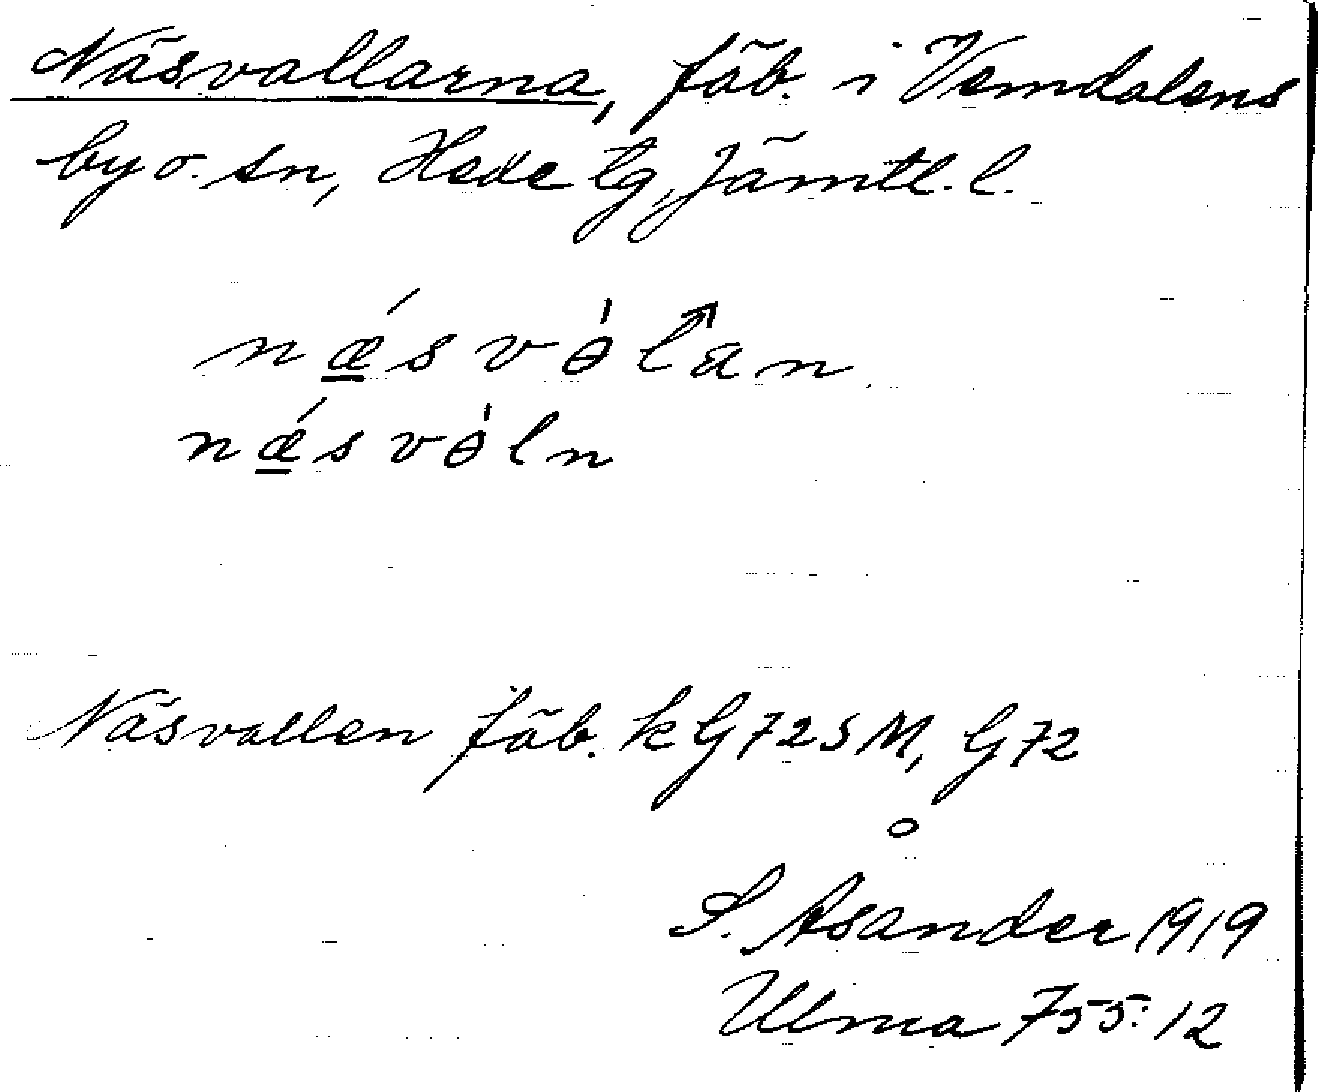 Näsvallarna, fäb. i Vemdalens
by o. sn, Hede tg, Jämtl. l.
næ´svɵ̀lan
næ´svɵ̀ln
Näsvallen fäb. k G7725M, G72
S. Åsander 1919
Ulma 755:12